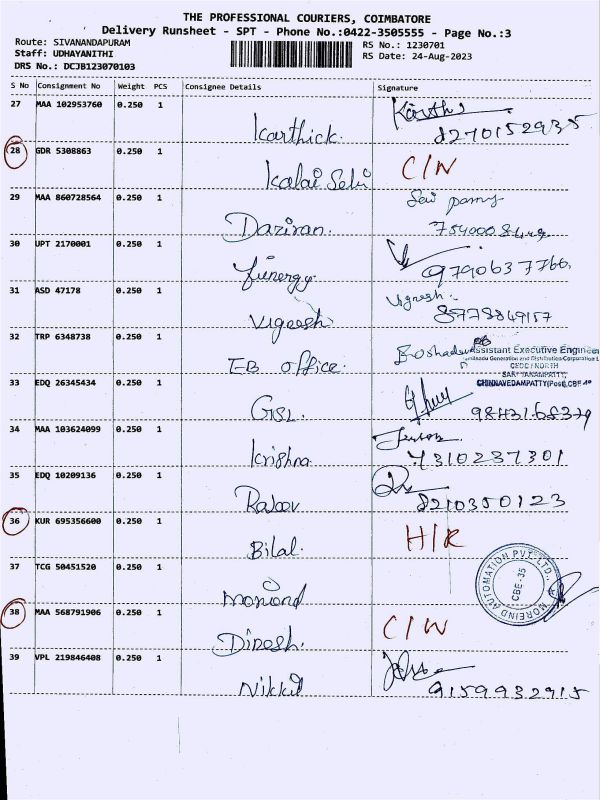 THE PROFESSIONAL COURIERS, COIMBATORE
Delivery Runsheet - SPT - Phone No.:0422-3505555 - Page No.:3
Route: SIVANANDAPURAM
Staff: UDHAYANITHI
DRS No.: DCJB123070103
RS No.: 1230701
RS Date: 24-Aug-2023
S No Consignment No Weight PCS Consignee Details Signature
27 MAA 102953760 0.250 1
Karthick. 8270152935
28 GDR 5308863 0.250 1
Kalai Selvi C/N
29 MAA 860728564 0.250 1
Daziran.
30 UPT 2170001 0.250 1
Finergy. 9790637766
31 ASD 47178 0.250 1 Vignesh.
Vignesh 8778849157
32 TRP 6348738 0.250 1
EB office. Assistant Executive Engineer
33 EDQ 26345434 0.250 1
CHINNAVEDAMPATTY(Post),CBE
GSL
34 MAA 103624099 0.250 1
Krishna 7310237301
35 EDQ 10209136 0.250 1
Rajeev 8210350123
36 KUR 695356600 0.250 1
Bilal. H/R
37 TCG 50451520 0.250 1
MOREIND AUTOMATION PVT. LTD.,
CBE-35
38 MAA 568791906 0.250 1
Dinesh. C/W
39 VPL 219846408 0.250 1
Nikkil 9159932915